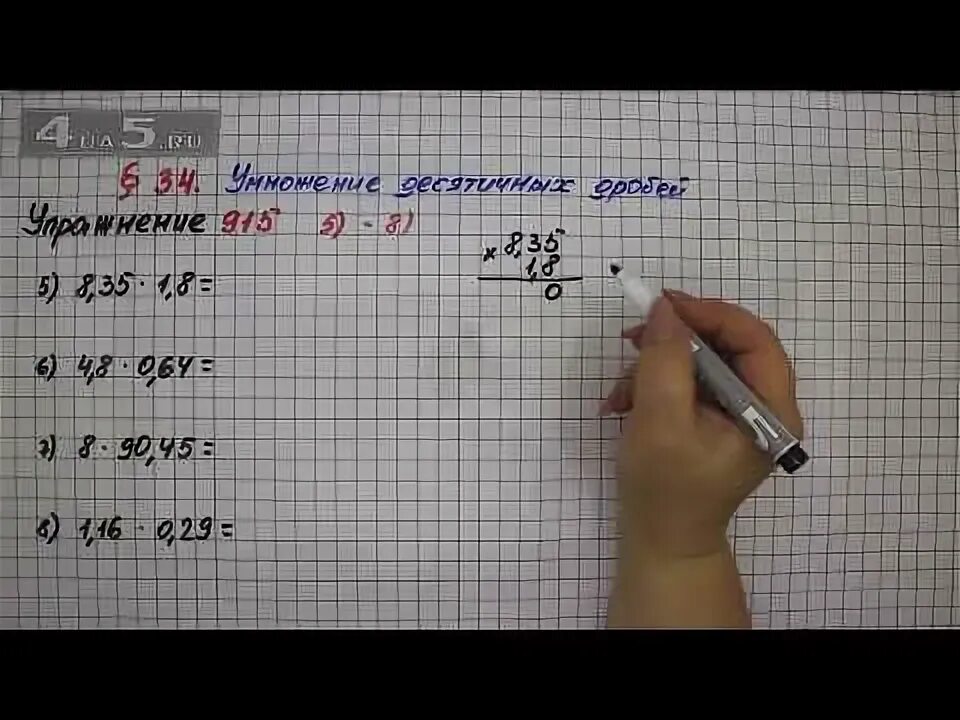 4 на 5.RU
§ 34. Умножение десятичных дробей
Упражнение 915 5) - 8)
5) 8,35 · 1,8 =
6) 4,8 · 0,64 =
7) 8 · 90,45 =
8) 1,16 · 0,29 =
× 8,35
1,8
0